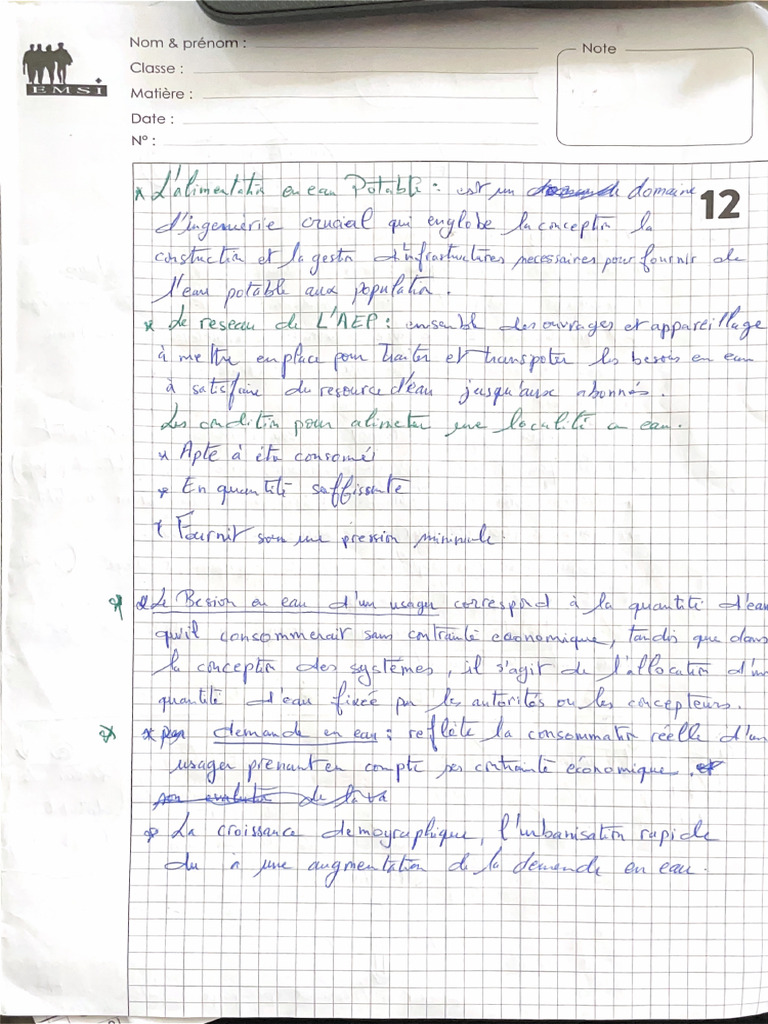 Nom & prénom :
Note
Classe :
EMSI
Matière :
Date :
N° :
* L'alimentation en eau Potable : est un domaine
12
d'ingenierie crucial qui englobe la conception la
construction et la gestion d'infrastructures necessaires pour fournir de
l'eau potable aux population.
* Le reseau de L'AEP : ensembl des ouvrages et appareillage
à mettre en place pour Traiter et transpoter les besoins en eau
à satisfaire du resource d'eau jusqu'aux abonnés.
Les condition pour alimeter une localité en eau.
* Apte à être consomé
* En quantité saffissante
* Fournit sous une pression minimale.
* Le Besion en eau d'un usager correspond à la quantité d'eau
qu'il consommerait sans contrainte economique, tandis que dans
la conception des systèmes, il s'agit de l'allocation d'une
quantité d'eau fixée par les autorités ou les concepteurs.
* demande en eau : reflète la consommation réelle d'un
usager prenant en compte ses contrainte économique.
* La croissance demographique, l'urbanisation rapide
du à une augmentation de la demende en eau.